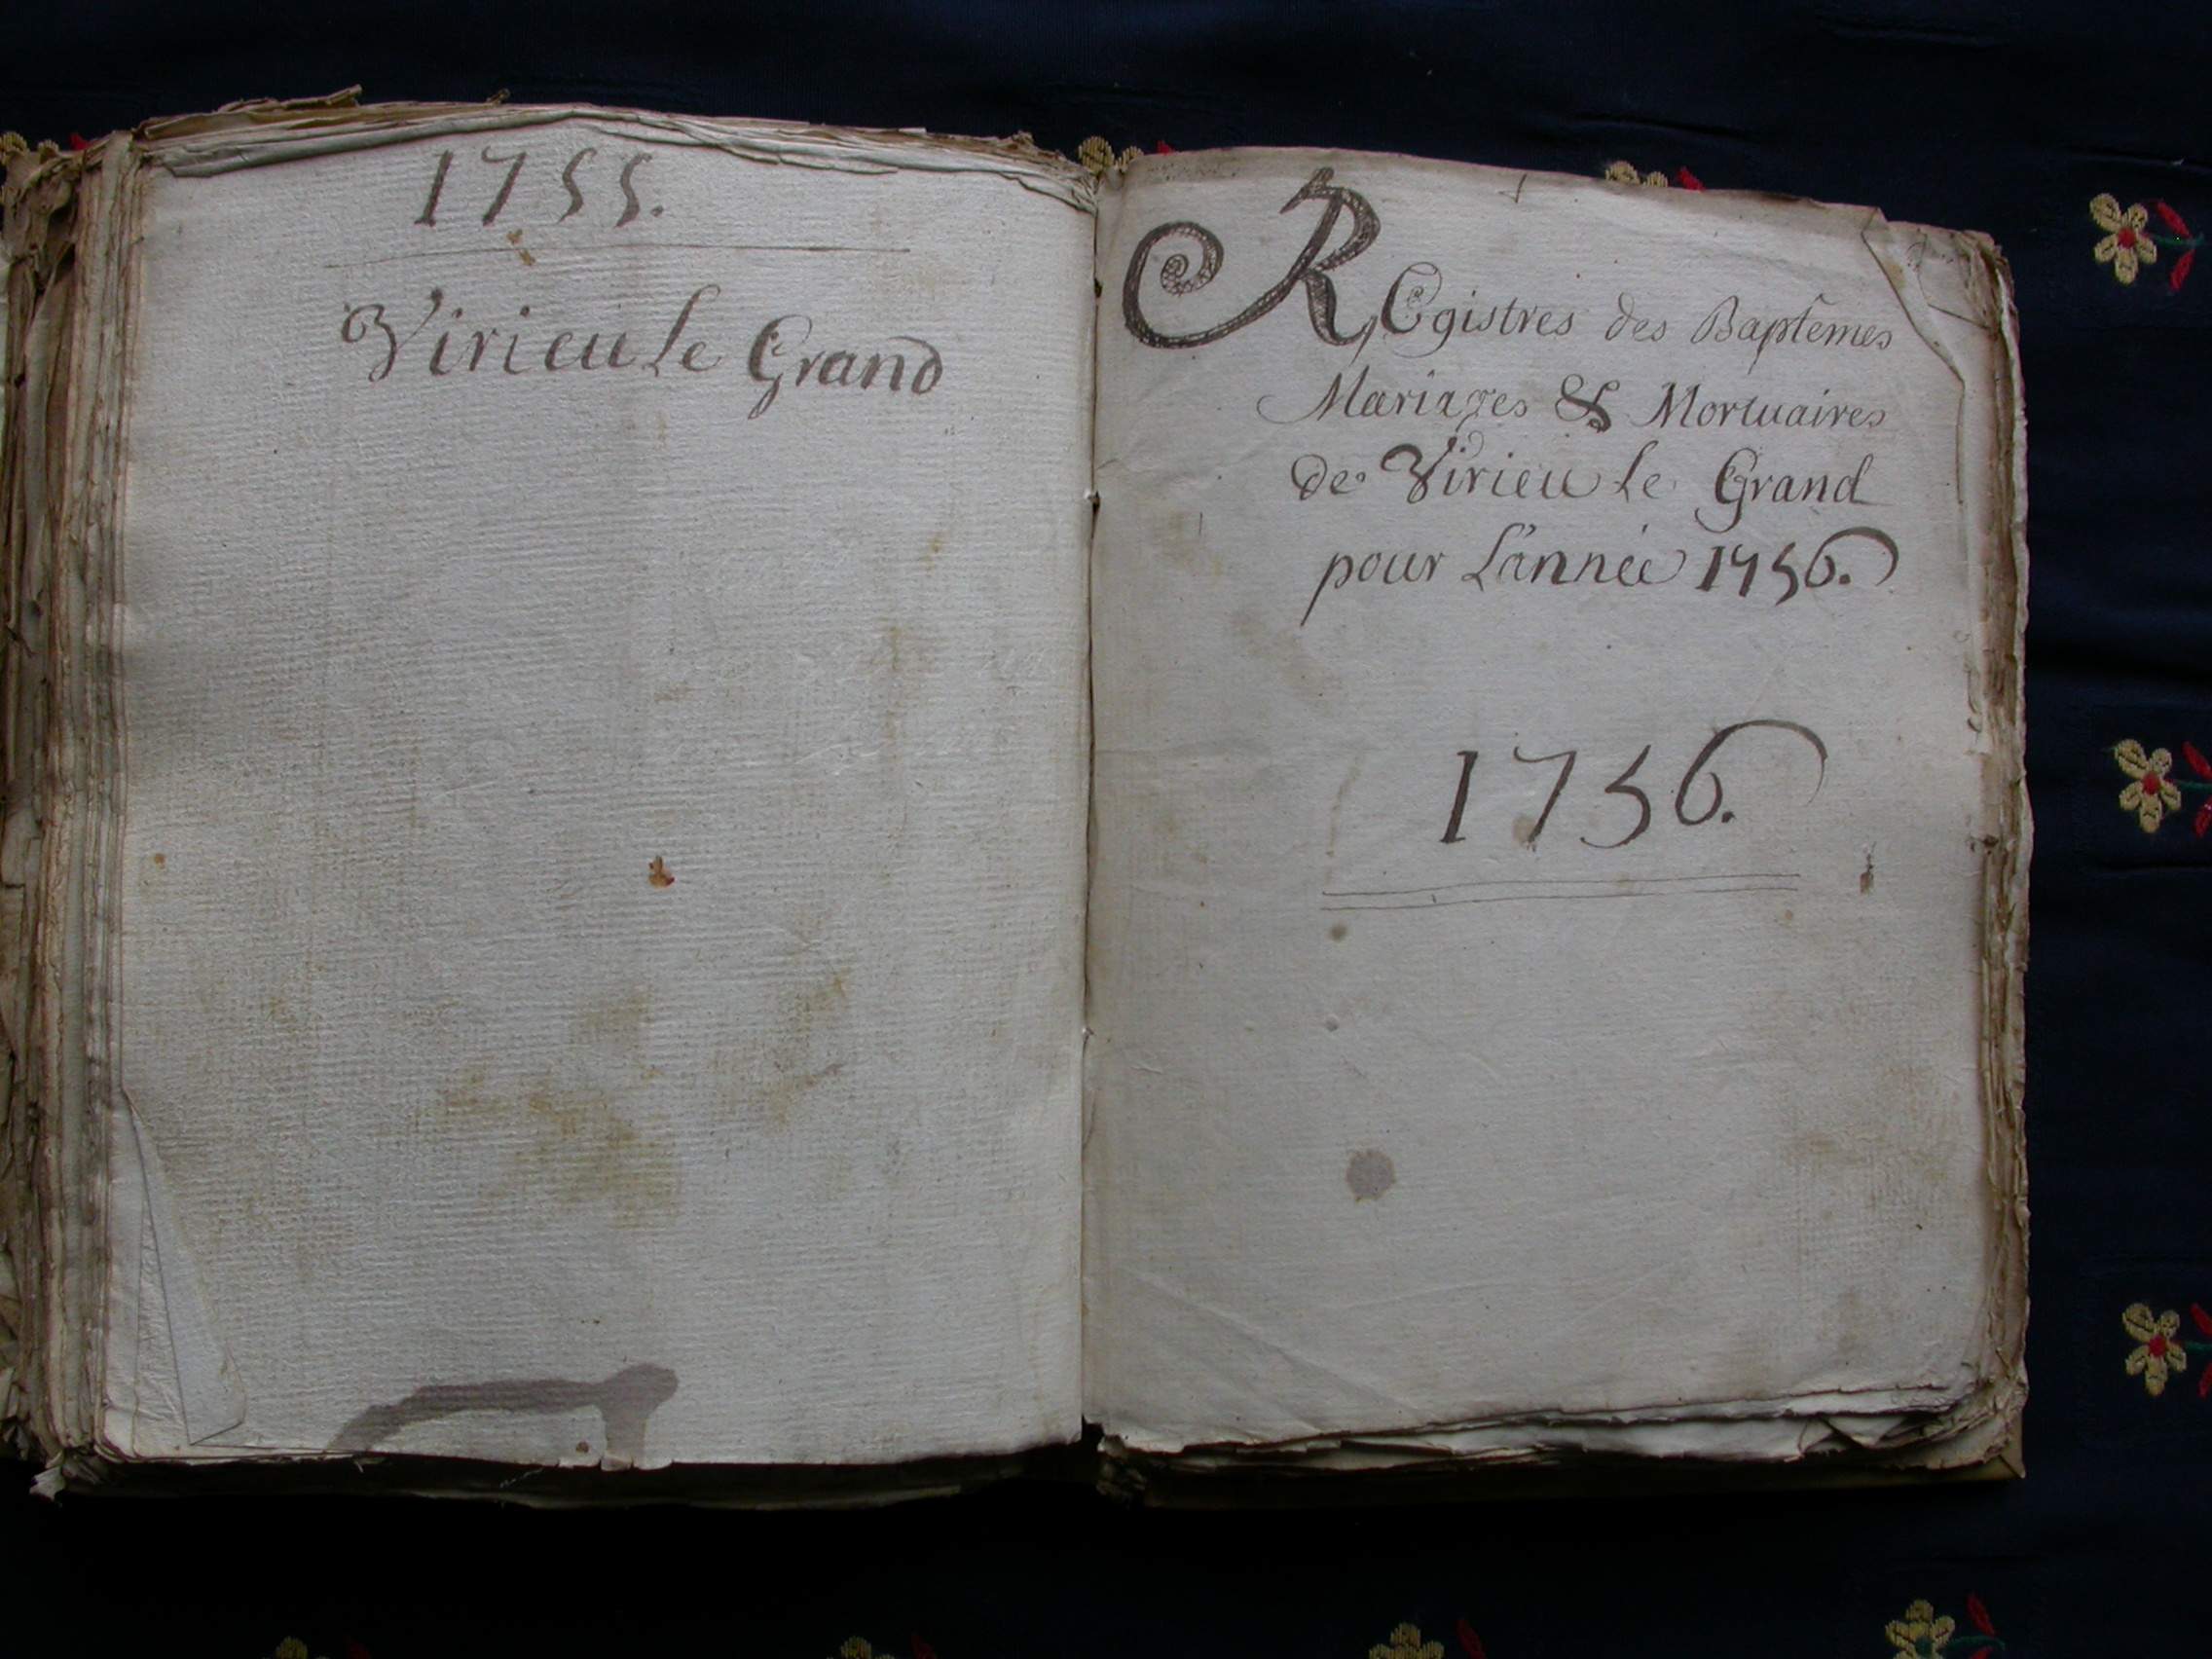 1755.
Virieu Le Grand
REgistres des Baptemes
Mariages & Mortuaires
de Virieu Le Grand
pour L'année 1756.
1756.